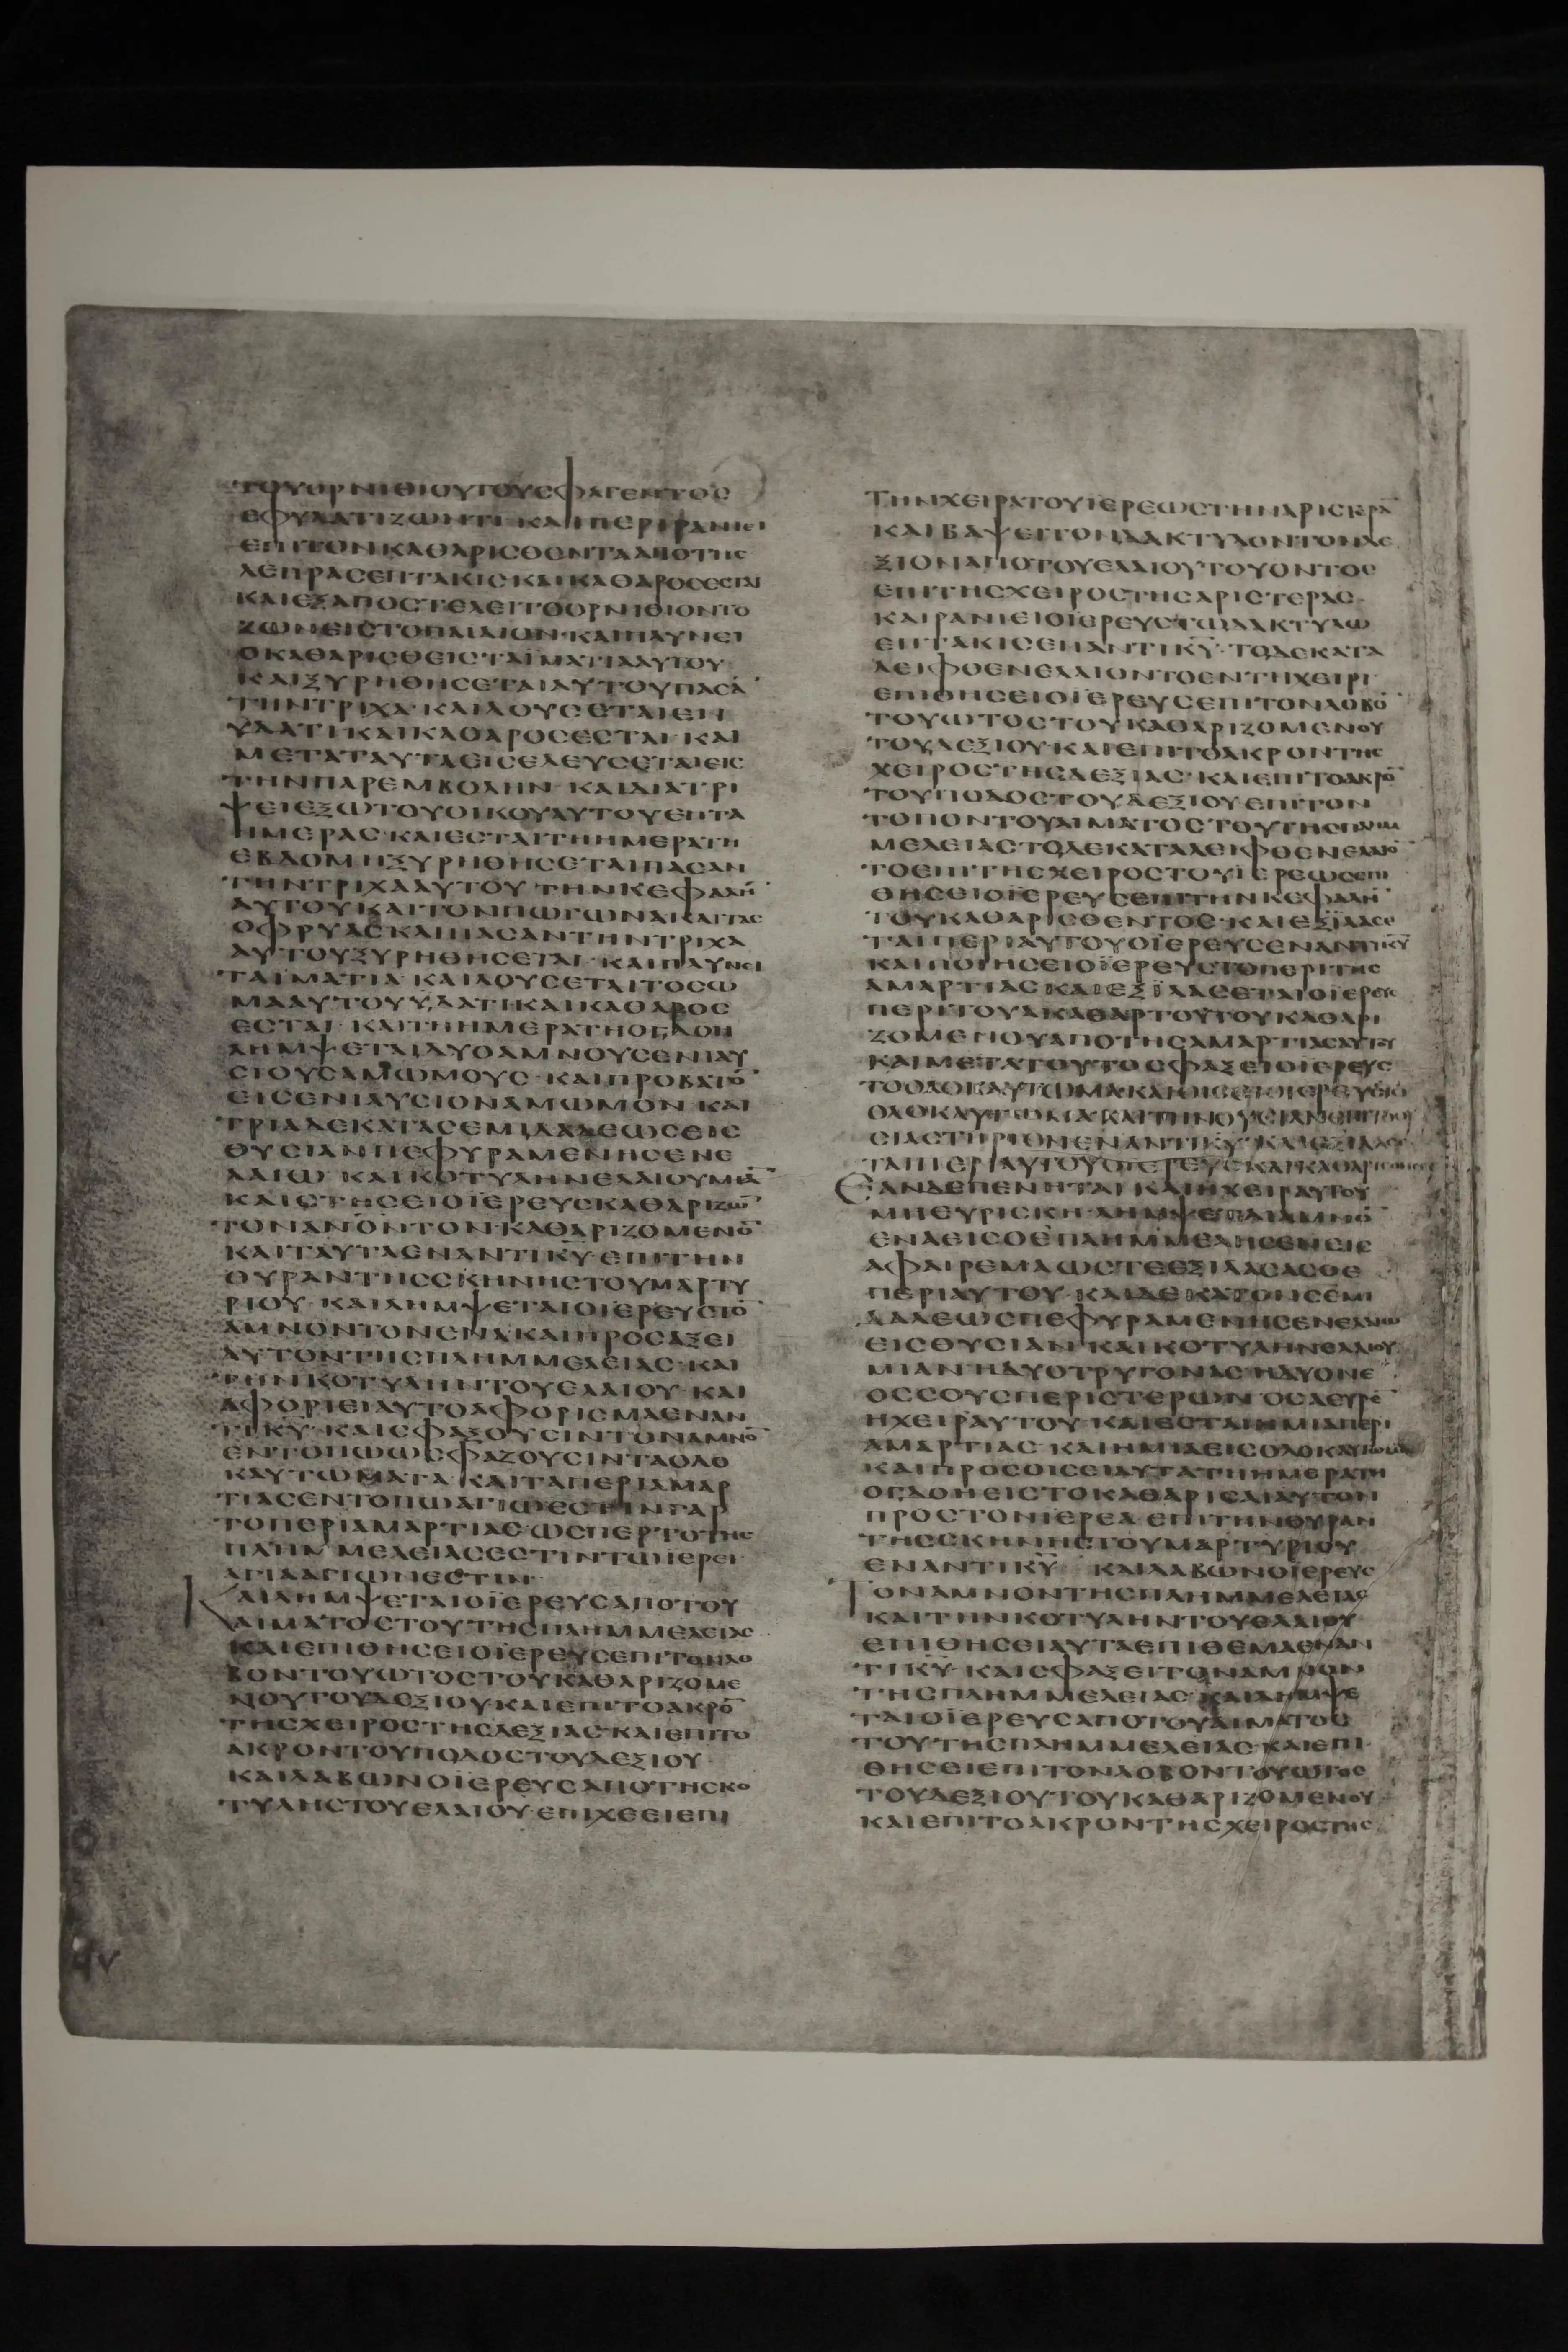 ΤΟΥΟΡΝΙΘΙΟΥΤΟΥСΦΑΓΕΝΤΟС
ΕΦΥΔΑΤΙΖΩΝΤΙ· ΚΑΙΠΕΡΙΡΑΝΙΕΙ
ΕΠΙΤΟΝΚΑΘΑΡΙСΘΕΝΤΑΑΠΟΤΗС
ΛΕΠΡΑСΕΠΤΑΚΙСΚΑΙΚΑΘΑΡΟСΕСΤΑΙ
ΚΑΙΕΞΑΠΟСΤΕΛΕΙΤΟΟΡΝΙΘΙΟΝΤΟ
ΖΩΝΕΙСΤΟΠΑΙΔΙΟΝ·ΚΑΙΠΛΥΝΕΙ
ΟΚΑΘΑΡΙСΘΕΙСΤΑΪΜΑΤΙΑΑΥΤΟΥ·
ΚΑΙΞΥΡΗΘΗСΕΤΑΙΑΥΤΟΥΠΑСΑ̅
ΤΗΝΤΡΙΧΑ·ΚΑΙΛΟΥСΕΤΑΙΕΝ
ΥΔΑΤΙ·ΚΑΙΚΑΘΑΡΟСΕСΤΑΙ· ΚΑΙ
ΜΕΤΑΤΑΥΤΑΕΙСΕΛΕΥСΕΤΑΙΕΙС
ΤΗΝΠΑΡΕΜΒΟΛΗΝ· ΚΑΙΔΙΑΤΡΙ
ΨΕΙΕΞΩΤΟΥΟΙΚΟΥΑΥΤΟΥΕΠΤΑ
ΗΜΕΡΑС·ΚΑΙΕСΤΑΙΤΗΗΜΕΡΑΤΗ
ΕΒΔΟΜΗΞΥΡΗΘΗСΕΤΑΙΠΑСΑΝ
ΤΗΝΤΡΙΧΑΑΥΤΟΥ·ΤΗΝΚΕΦΑΛΗ̅
ΑΥΤΟΥΚΑΙΤΟΝΠΩΓΩΝΑΚΑΙΤΑС
ΟΦΡΥΑСΚΑΙΠΑСΑΝΤΗΝΤΡΙΧΑ
ΑΥΤΟΥΞΥΡΗΘΗСΕΤΑΙ· ΚΑΙΠΛΥΝΕΙ
ΤΑΪΜΑΤΙΑ·ΚΑΙΛΟΥСΕΤΑΙΤΟСΩ
ΜΑΑΥΤΟΥΥΔΑΤΙΚΑΙΚΑΘΑΡΟС
ΕСΤΑΙ· ΚΑΙΤΗΗΜΕΡΑΤΗΟΓΔΟΗ
ΛΗΜΨΕΤΑΙΔΥΟΑΜΝΟΥСΕΝΙΑΥ
СΙΟΥСΑΜΩΜΟΥС· ΚΑΙΠΡΟΒΑΤΟ̅
ΕΙСΕΝΙΑΥСΙΟΝΑΜΩΜΟΝ· ΚΑΙ
ΤΡΙΑΔΕΚΑΤΑСΕΜΙΔΑΛΕΩСΕΙС
ΘΥСΙΑΝΠΕΦΥΡΑΜΕΝΗСΕΝΕ
ΛΑΙΩ· ΚΑΙΚΟΤΥΛΗΝΕΛΑΙΟΥΜΙΑ̅
ΚΑΙСΤΗСΕΙΟΪΕΡΕΥСΚΑΘΑΡΙΖΩ̅
ΤΟΝΑΝΟ̅ΝΤΟΝΚΑΘΑΡΙΖΟΜΕΝΟ̅
ΚΑΙΤΑΥΤΑΕΝΑΝΤΙΚ̅Υ̅·ΕΠΙΤΗΝ
ΘΥΡΑΝΤΗССΚΗΝΗСΤΟΥΜΑΡΤΥ
ΡΙΟΥ· ΚΑΙΛΗΜΨΕΤΑΙΟΪΕΡΕΥСΤΟ̅
ΑΜΝΟΝΤΟΝΕΝΑΚΑΙΠΡΟСΑΞΕΙ
ΑΥΤΟΝΤΗСΠΛΗΜΜΕΛΕΙΑС·ΚΑΙ
ΤΗΝΚΟΤΥΛΗΝΤΟΥΕΛΑΙΟΥ· ΚΑΙ
ΑΦΟΡΙΕΙΑΥΤΟΑΦΟΡΙСΜΑΕΝΑΝ
ΤΙΚ̅Υ̅·ΚΑΙСΦΑΞΟΥСΙΝΤΟΝΑΜΝΟ̅
ΕΝΤΟΠΩΩСΦΑΖΟΥСΙΝΤΑΟΛΟ
ΚΑΥΤΩΜΑΤΑ·ΚΑΙΤΑΠΕΡΙΑΜΑΡ
ΤΙΑСΕΝΤΟΠΩΑΓΙΩΕСΤΙΝΓΑΡ
ΤΟΠΕΡΙΑΜΑΡΤΙΑС·ΩСΠΕΡΤΟΤΗС
ΠΛΗΜΜΕΛΕΙΑСΕСΤΙΝΤΩΙΕΡΕΙ·
ΑΓΙΑΑΓΙΩΝΕСΤΙΝ·
ΚΑΙΛΗΜΨΕΤΑΙΟΪΕΡΕΥСΑΠΟΤΟΥ
ΑΙΜΑΤΟСΤΟΥΤΗСΠΛΗΜΜΕΛΕΙΑС·
ΚΑΙΕΠΙΘΗСΕΙΟΪΕΡΕΥСΕΠΙΤΟΝΛΟ
ΒΟΝΤΟΥΩΤΟСΤΟΥΚΑΘΑΡΙΖΟΜΕ
ΝΟΥΤΟΥΔΕΞΙΟΥΚΑΙΕΠΙΤΟΑΚΡΟ̅
ΤΗСΧΕΙΡΟСΤΗСΔΕΞΙΑС·ΚΑΙΕΠΙΤΟ
ΑΚΡΟΝΤΟΥΠΟΔΟСΤΟΥΔΕΞΙΟΥ·
ΚΑΙΛΑΒΩΝΟΪΕΡΕΥСΑΠΟΤΗСΚΟ
ΤΥΛΗСΤΟΥΕΛΑΙΟΥ·ΕΠΙΧΕΕΙΕΠΙ
ΤΗΝΧΕΙΡΑΤΟΥΪΕΡΕΩСΤΗΝΑΡΙСΤΕΡΑ̅
ΚΑΙΒΑΨΕΙΤΟΝΔΑΚΤΥΛΟΝΤΟΝΔΕ
ΞΙΟΝΑΠΟΤΟΥΕΛΑΙΟΥΤΟΥΟΝΤΟС
ΕΠΙΤΗСΧΕΙΡΟСΤΗСΑΡΙСΤΕΡΑС·
ΚΑΙΡΑΝΙΕΙΟΪΕΡΕΥСΤΩΔΑΚΤΥΛΩ
ΕΠΤΑΚΙСΕΝΑΝΤΙΚ̅Υ̅·ΤΟΔΕΚΑΤΑ
ΛΕΙΦΘΕΝΕΛΑΙΟΝΤΟΕΝΤΗΧΕΙΡΙ
ΕΠΙΘΗСΕΙΟΪΕΡΕΥСΕΠΙΤΟΝΛΟΒΟ̅
ΤΟΥΩΤΟСΤΟΥΚΑΘΑΡΙΖΟΜΕΝΟΥ
ΤΟΥΔΕΞΙΟΥ·ΚΑΙΕΠΙΤΟΑΚΡΟΝΤΗС
ΧΕΙΡΟСΤΗСΔΕΞΙΑС·ΚΑΙΕΠΙΤΟΑΚΡΟ̅
ΤΟΥΠΟΔΟСΤΟΥΔΕΞΙΟΥΕΠΙΤΟΝ
ΤΟΠΟΝΤΟΥΑΙΜΑΤΟСΤΟΥΤΗСΠΛΗΜ
ΜΕΛΕΙΑС·ΤΟΔΕΚΑΤΑΛΕΙΦΘΕΝΕΛΑΙΟ̅
ΤΟΕΠΙΤΗСΧΕΙΡΟСΤΟΥΪΕΡΕΩСΕΠΙ
ΘΗСΕΙΟΪΕΡΕΥСΕΠΙΤΗΝΚΕΦΑΛΗ̅
ΤΟΥΚΑΘΑΡΙСΘΕΝΤΟС·ΚΑΙΕΞΪΛΑСΕ
ΤΑΙΠΕΡΙΑΥΤΟΥΟΪΕΡΕΥСΕΝΑΝΤΙΚ̅Υ̅
ΚΑΙΠΟΙΗСΕΙΟΪΕΡΕΥСΤΟΠΕΡΙΤΗС
ΑΜΑΡΤΙΑСΚΑΙΕΞΪΛΑСΕΤΑΙΟΪΕΡΕΥС
ΠΕΡΙΤΟΥΑΚΑΘΑΡΤΟΥΤΟΥΚΑΘΑΡΙ
ΖΟΜΕΝΟΥΑΠΟΤΗСΑΜΑΡΤΙΑСΑΥΤΟΥ
ΚΑΙΜΕΤΑΤΟΥΤΟСΦΑΞΕΙΟΪΕΡΕΥС
ΤΟΟΛΟΚΑΥΤΩΜΑ·ΚΑΙΟΙСΕΙΟΙΕΡΕΥСΤΟ
ΟΛΟΚΑΥΤΩΜΑΚΑΙΤΗΝΘΥСΙΑΝΕΠΙΤΟΘΥ
СΙΑСΤΗΡΙΟΝΕΝΑΝΤΙΚ̅Υ̅·ΚΑΙΕΞΙΛΑСΕ
ΤΑΙΠΕΡΙΑΥΤΟΥΟΪΕΡΕΥСΚΑΙΚΑΘΑΡΙСΘΗСΕΤΑΙ
ΕΑΝΔΕΠΕΝΗΤΑΙ ΚΑΙΗΧΕΙΡΑΥΤΟΥ
ΜΗΕΥΡΙСΚΗ·ΛΗΜΨΕΤΑΙΑΜΝΟ̅
ΕΝΑΕΙСΟΕΠΛΗΜΜΕΛΗСΕΝΕΙС
ΑΦΑΙΡΕΜΑΩСΤΕΕΞΙΛΑСΑСΘΕ
ΠΕΡΙΑΥΤΟΥ·ΚΑΙΔΕΚΑΤΟΝСΕΜΙ
ΔΑΛΕΩСΠΕΦΥΡΑΜΕΝΗСΕΝΕΛΑΙΩ
ΕΙСΘΥСΙΑΝ·ΚΑΙΚΟΤΥΛΗΝΕΛΑΙΟΥ
ΜΙΑΝ·ΗΔΥΟΤΡΥΓΟΝΑС·ΗΔΥΟΝΕ
ΟССΟΥСΠΕΡΙСΤΕΡΩΝ·ΟСΑΕΥΡΕ̅
ΗΧΕΙΡΑΥΤΟΥ·ΚΑΙΕСΤΑΙΗΜΙΑΠΕΡΙ
ΑΜΑΡΤΙΑС·ΚΑΙΗΜΙΑΕΙСΟΛΟΚΑΥΤΩΜΑ
ΚΑΙΠΡΟСΟΙСΕΙΑΥΤΑΤΗΗΜΕΡΑΤΗ
ΟΓΔΟΗΕΙСΤΟΚΑΘΑΡΙСΑΙΑΥΤΟΝ
ΠΡΟСΤΟΝΙΕΡΕΑ·ΕΠΙΤΗΝΘΥΡΑΝ
ΤΗССΚΗΝΗСΤΟΥΜΑΡΤΥΡΙΟΥ
ΕΝΑΝΤΙΚ̅Υ̅· ΚΑΙΛΑΒΩΝΟΪΕΡΕΥС
ΤΟΝΑΜΝΟΝΤΗСΠΛΗΜΜΕΛΕΙΑС
ΚΑΙΤΗΝΚΟΤΥΛΗΝΤΟΥΕΛΑΙΟΥ
ΕΠΙΘΗСΕΙΑΥΤΑΕΠΙΘΕΜΑΕΝΑΝ
ΤΙΚ̅Υ̅·ΚΑΙСΦΑΞΕΙΤΟΝΑΜΝΟΝ
ΤΗСΠΛΗΜΜΕΛΕΙΑС·ΚΑΙΛΗΜΨΕ
ΤΑΙΟΪΕΡΕΥСΑΠΟΤΟΥΑΙΜΑΤΟС
ΤΟΥΤΗСΠΛΗΜΜΕΛΕΙΑС·ΚΑΙΕΠΙ
ΘΗСΕΙΕΠΙΤΟΝΛΟΒΟΝΤΟΥΩΤΟС
ΤΟΥΔΕΞΙΟΥΤΟΥΚΑΘΑΡΙΖΟΜΕΝΟΥ·
ΚΑΙΕΠΙΤΟΑΚΡΟΝΤΗСΧΕΙΡΟСΤΗС